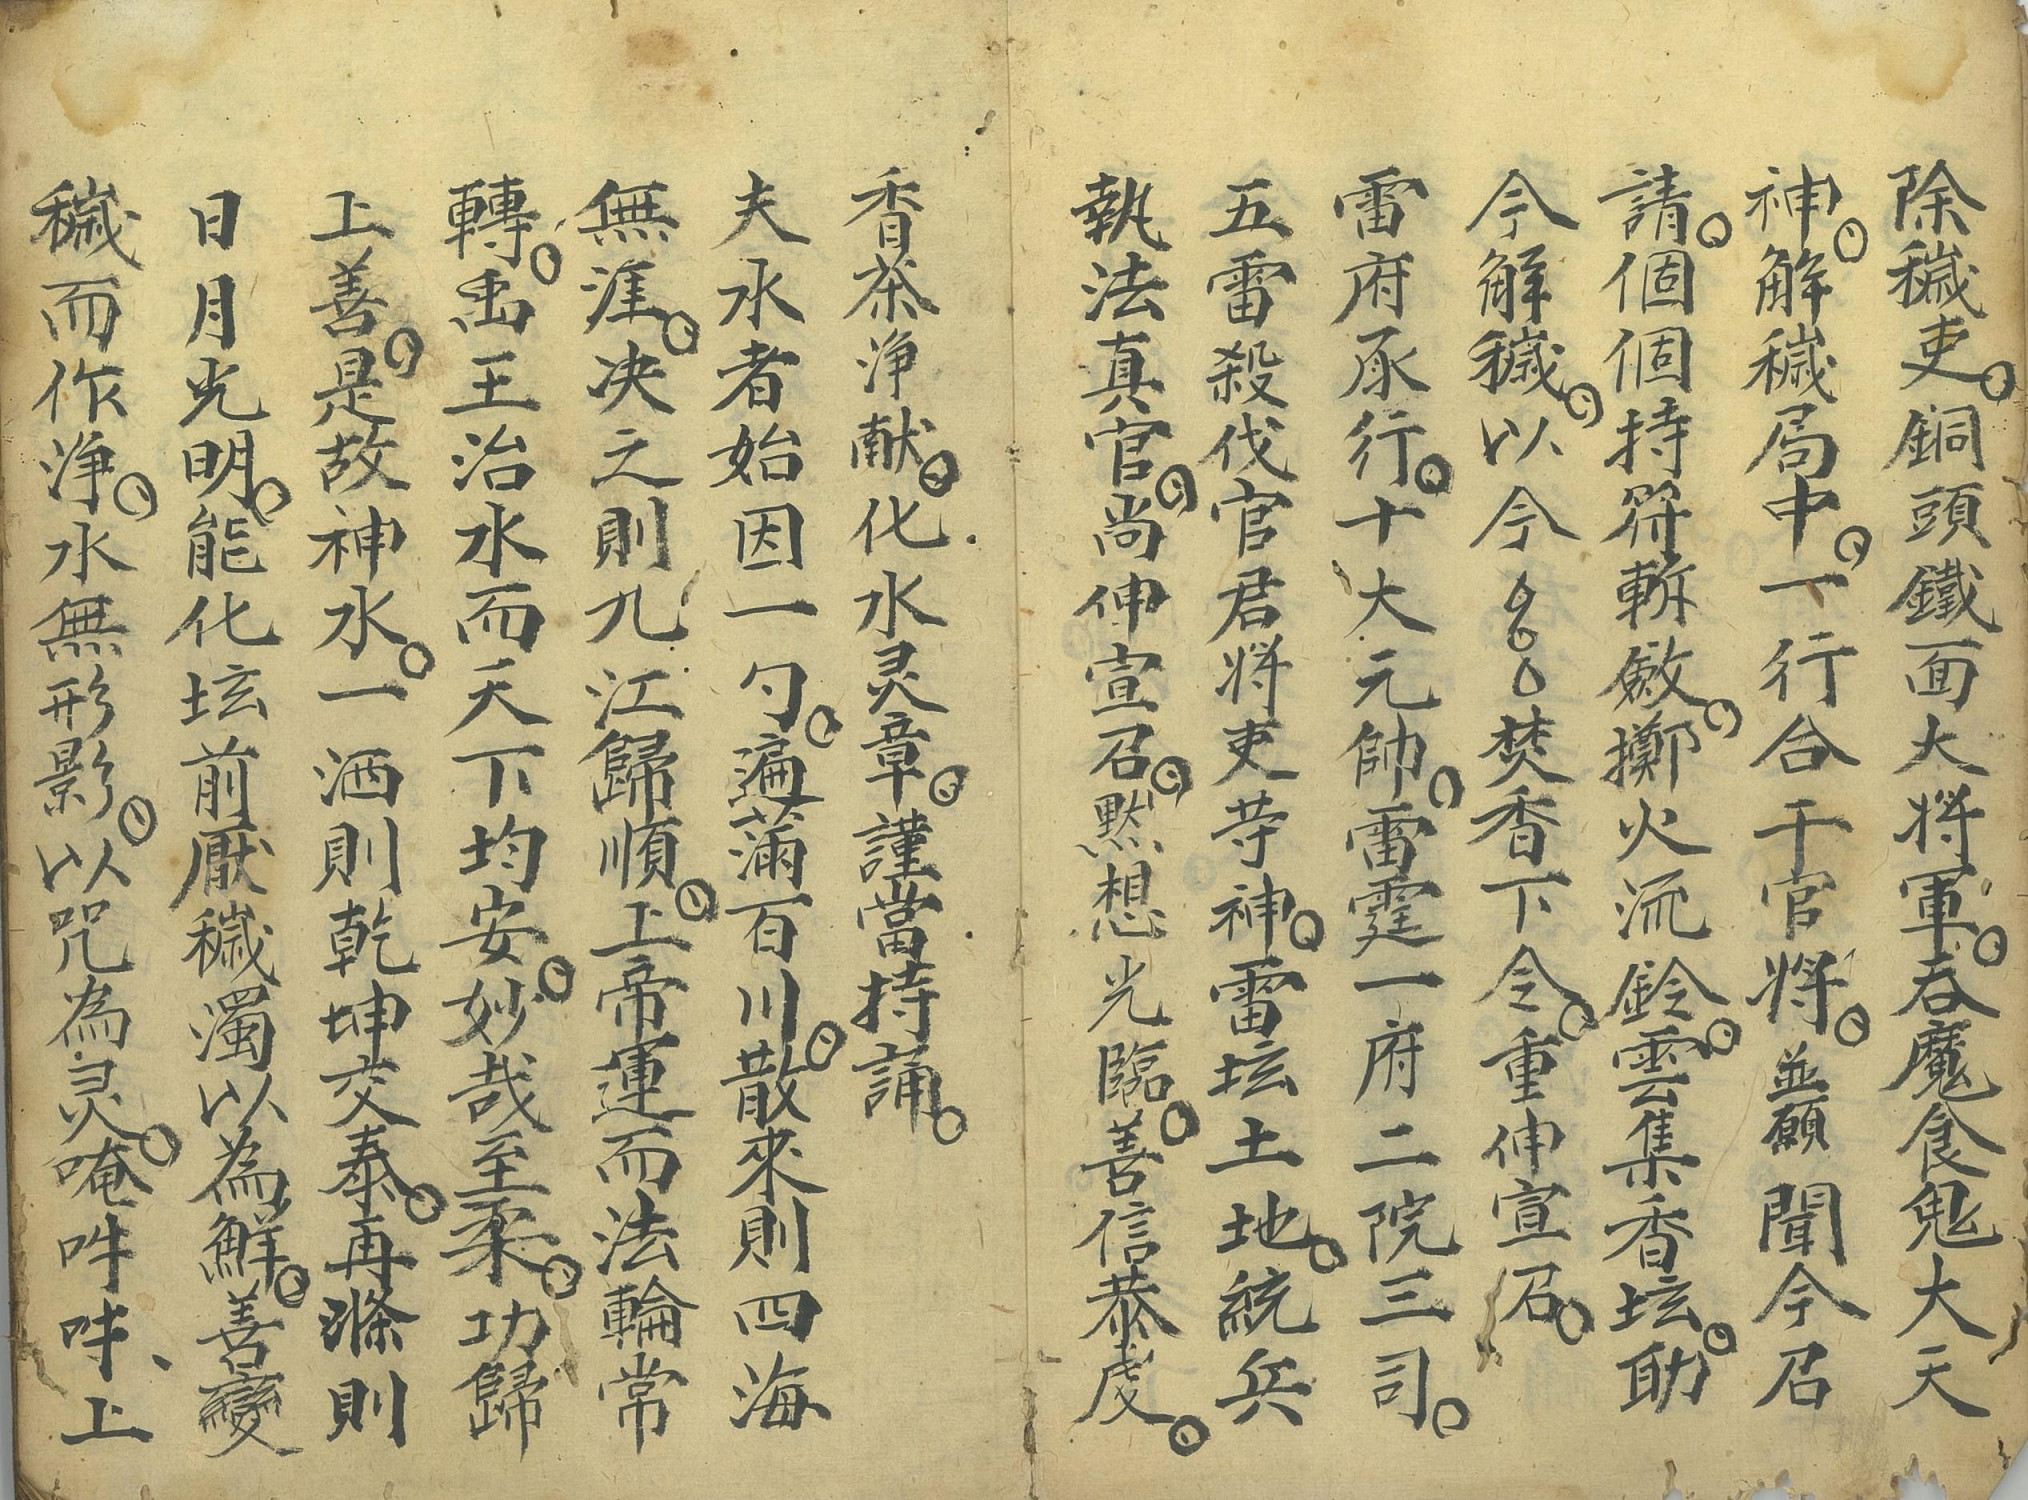 除穢吏銅頭鐵面大將軍吞魔食鬼大天
神解穢局中一行合干官將並願聞今召
請個個持符斬斂擲火流鈴雲集香坛助
今解穢以今焚香下令重伸宣召
雷府承行十大元帥雷霆一府二院三司
五雷殺伐官君將吏䓁神雷坛土地統兵
執法真官尚伸宣召默想光臨善信恭虔
香茶浄献化水灵章謹當持誦
夫水者始因一勺遍满百川散來則四海
無涯决之則九江歸順上帝運而法輪常
轉禹王治水而天下均安妙哉至柔功歸
上善是故神水一洒則乾坤交泰再滌則
日月光明能化坛前厭穢濁以為鮮善變
穢而作浄水無形影以咒為灵唵吽吽上